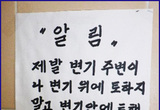 "알 림"
제발 변기 주변이
나 변기 위에 토하지
말고 변기안에 토해